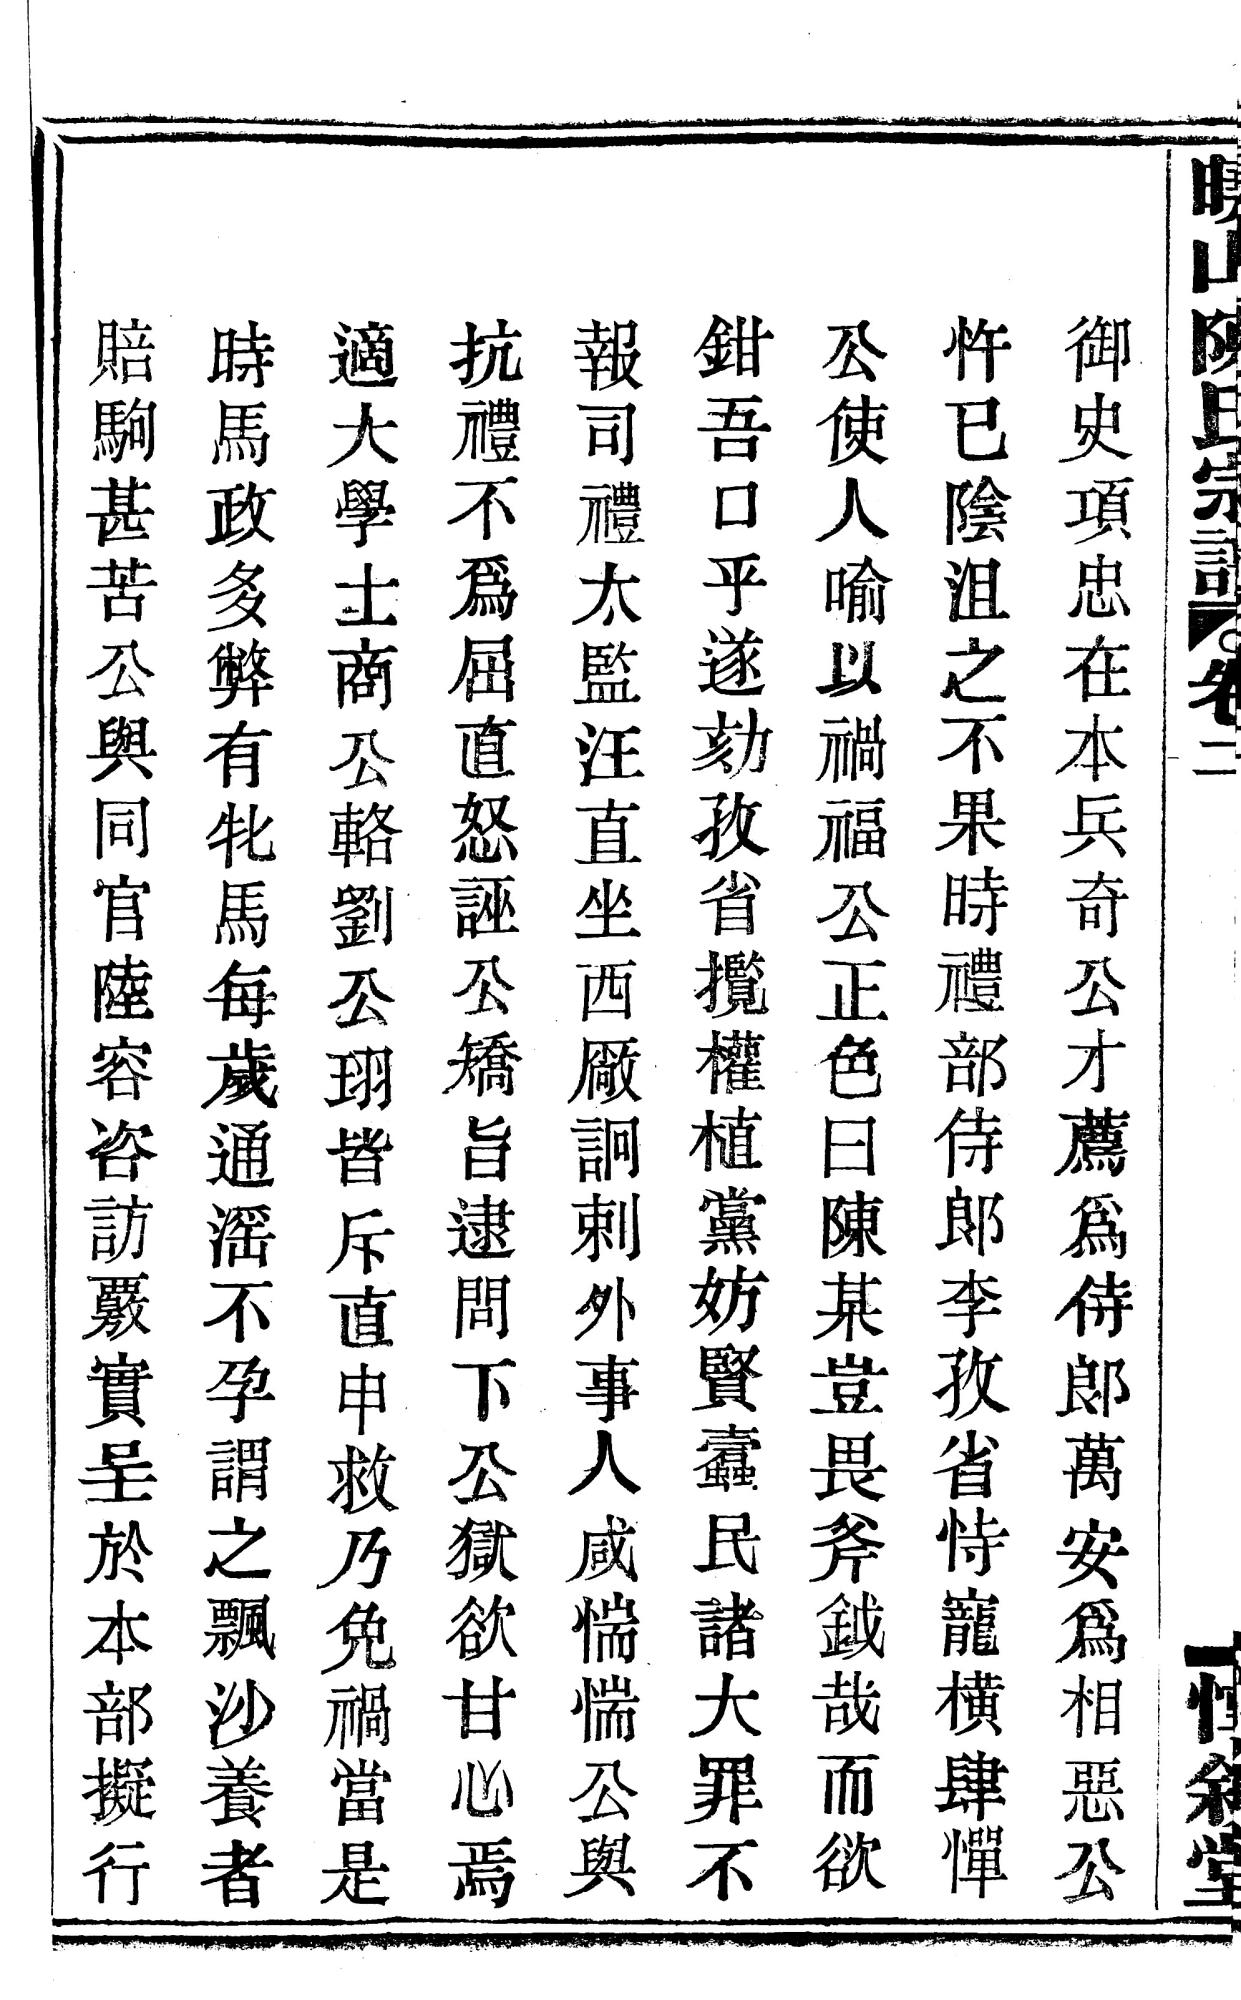 山陳氏宗譜 卷二
御史項忠在本兵奇公才薦爲侍郎萬安爲相惡公
忤已陰沮之不果時禮部侍郎李孜省恃寵橫肆憚
公使人喻以禍福公正色曰陳某豈畏斧鉞哉而欲
鉗吾口乎遂劾孜省攬權植黨妨賢蠹民諸大罪不
報司禮太監汪直坐西厰詗剌外事人咸惴惴公與
抗禮不爲屈直怒誣公矯旨逮問下公獄欲甘心焉
適大學士商公輅劉公珝皆斥直申救乃免禍當是
時馬政多弊有牝馬每歲通滛不孕謂之飄沙養者
賠駒甚苦公與同官陸容咨訪覈實呈於本部擬行
堂